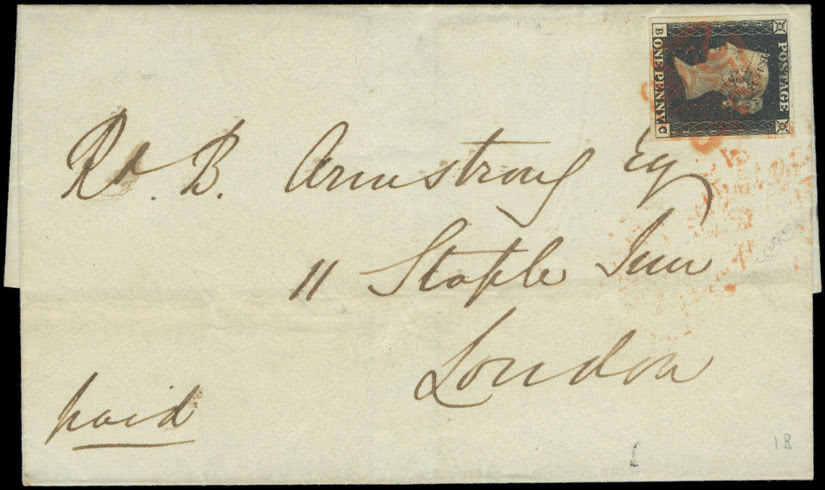 POSTAGE
B ONE PENNY C
Rd. B. Armstrong Esq
11 Staple Inn
London
paid
18